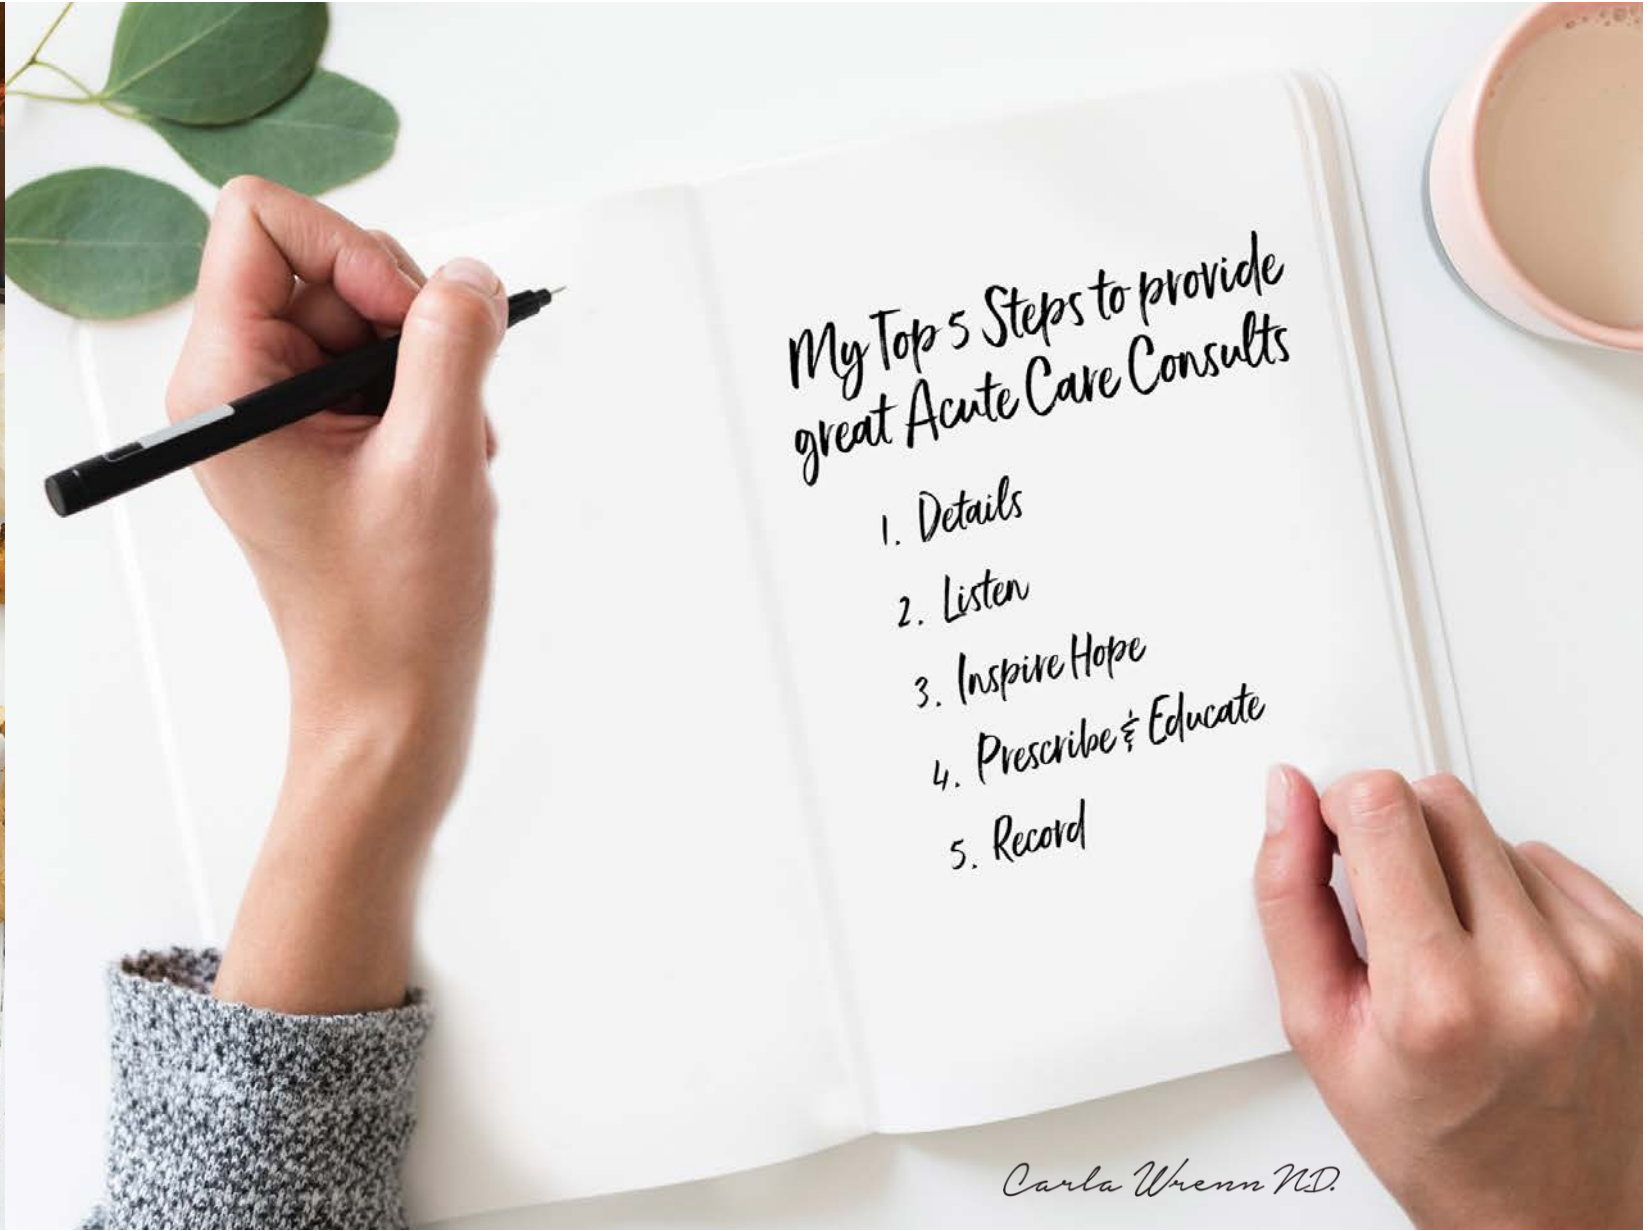 My Top 5 Steps to provide
great Acute Care Consults
1. Details
2. Listen
3. Inspire Hope
4. Prescribe & Educate
5. Record
Carla Wrenn N.D.